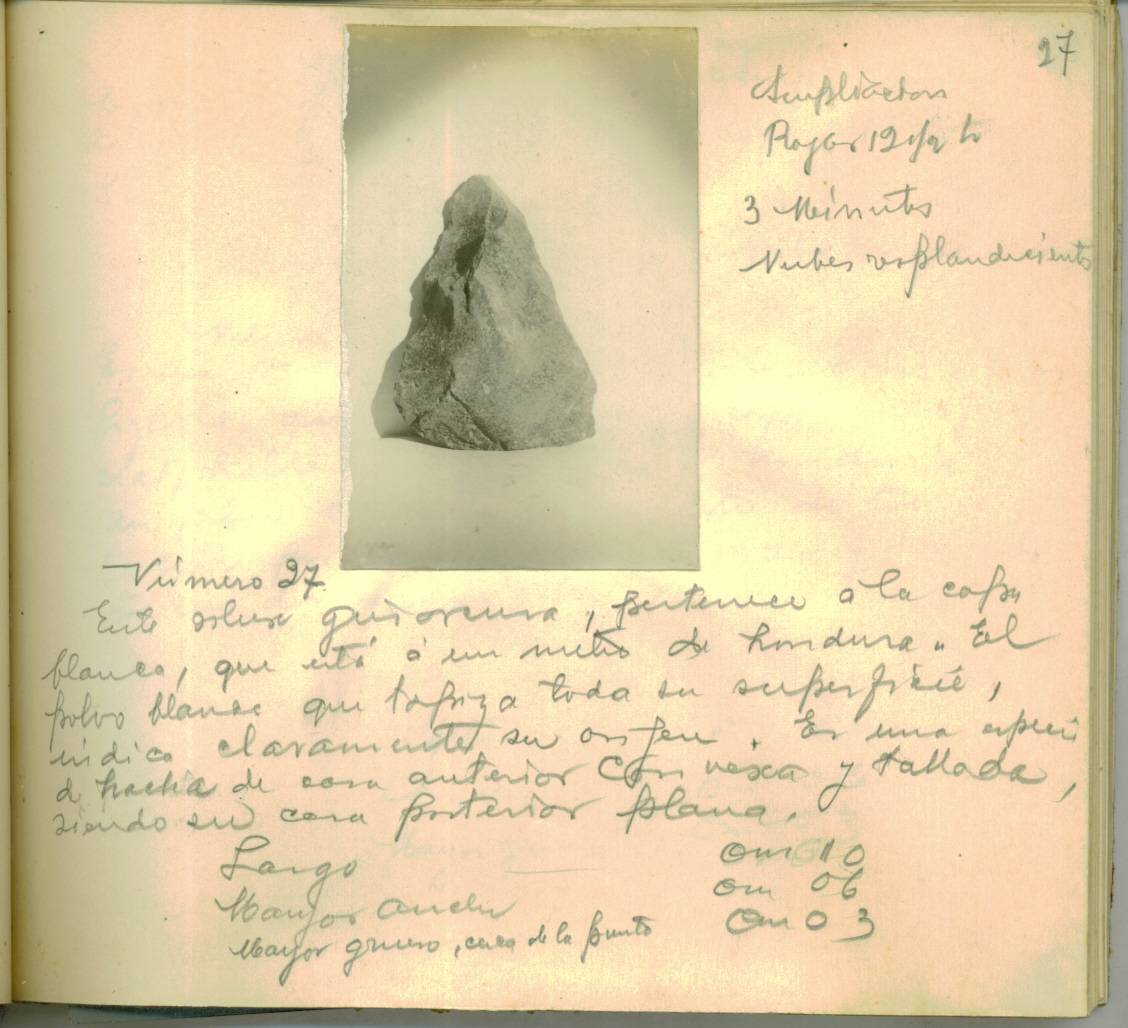 27
Ampliacion
Rojar 12 1/2 h
3 Minutos
Nubes resplandeciente
Número 27
Este silex gris oscura, pertenece á la capa
blanca, que está á un metro de hondura. El
polvo blanco que tapiza toda su superficie,
indica claramente su origen. Es una especie
de hacha de cara anterior convexa y tallada,
siendo su cara posterior plana.
Largo 0m 10
Mayor ancho 0m 06
Mayor grueso, cerca de la punta 0m 03